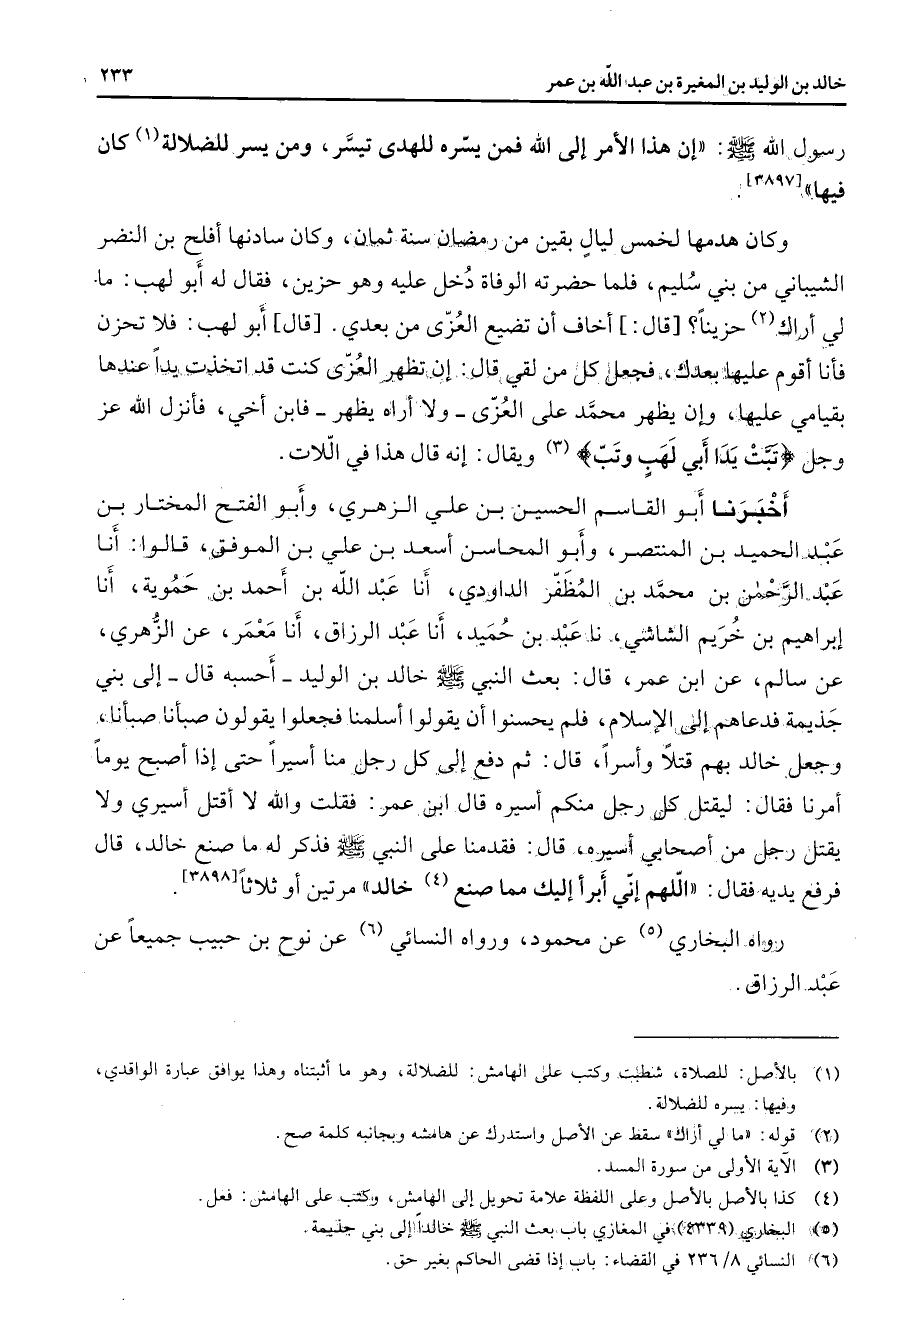 خالد بن الوليد بن المغيرة بن عبد الله بن عمر
٢٣٣
رسول الله ﷺ: «إن هذا الأمر إلى الله فمن يسّره للهدى تيسَّر، ومن يسر للضلالة(١) كان
فيها»[٣٨٩٧].
وكان هدمها لخمس ليالٍ بقين من رمضان سنة ثمان، وكان سادنها أفلح بن النضر
الشيباني من بني سُليم، فلما حضرته الوفاة دُخل عليه وهو حزين، فقال له أبو لهب: ما
لي أراك(٢) حزيناً؟ [قال:] أخاف أن تضيع العُزّى من بعدي. [قال] أبو لهب: فلا تحزن
فأنا أقوم عليها بعدك، فجعل كل من لقي قال: إن تظهر العُزّى كنت قد اتخذت يداً عندها
بقيامي عليها، وإن يظهر محمَّد على العُزّى ـ ولا أراه يظهر ـ فابن أخي، فأنزل الله عز
وجل ﴿تَبَّتْ يَدَا أَبي لَهَبٍ وتَبّ﴾ (٣) ويقال: إنه قال هذا في اللّات.
أَخْبَرَنا أَبو القاسم الحسين بن علي الزهري، وأَبو الفتح المختار بن
عَبْد الحميد بن المنتصر، وأَبو المحاسن أسعد بن علي بن الموفق، قالوا: أَنا
عَبْد الرَّحْمٰن بن محمَّد بن المُظَفّر الداودي، أَنا عَبْد الله بن أَحمد بن حَمُوية، أَنا
إبراهيم بن خُرَيم الشاشي، نا عَبْد بن حُمَيد، أَنا عَبْد الرزاق، أَنا مَعْمَر، عن الزُّهري،
عن سالم، عن ابن عمر، قال: بعث النبي ﷺ خالد بن الوليد ـ أَحسبه قال ـ إلى بني
جَذيمة فدعاهم إلى الإسلام، فلم يحسنوا أن يقولوا أسلمنا فجعلوا يقولون صبأنا صبأنا،
وجعل خالد بهم قتلاً وأسراً، قال: ثم دفع إلى كل رجل منا أسيراً حتى إذا أصبح يوماً
أمرنا فقال: ليقتل كل رجل منكم أسيره قال ابن عمر: فقلت والله لا أقتل أسيري ولا
يقتل رجل من أصحابي أسيره، قال: فقدمنا على النبي ﷺ فذكر له ما صنع خالد، قال
فرفع يديه فقال: «اللّهم إنّي أبرأ إليك مما صنع (٤) خالد» مرتين أو ثلاثاً[٣٨٩٨].
رواه البخاري (٥) عن محمود، ورواه النسائي (٦) عن نوح بن حبيب جميعاً عن
عَبْد الرزاق.
(١) بالأصل: للصلاة، شطبت وكتب على الهامش: للضلالة، وهو ما أثبتناه وهذا يوافق عبارة الواقدي،
وفيها: يسره للضلالة.
(٢) قوله: «ما لي أراك» سقط عن الأصل واستدرك عن هامشه وبجانبه كلمة صح.
(٣) الآية الأولى من سورة المسد.
(٤) كذا بالأصل بالأصل وعلى اللفظة علامة تحويل إلى الهامش، وكتب على الهامش: فعل.
(٥) البخاري (٤٣٣٩) في المغازي باب بعث النبي ﷺ خالداً إلى بني جذيمة.
(٦) النسائي ٨/ ٢٣٦ في القضاء: باب إذا قضى الحاكم بغير حق.